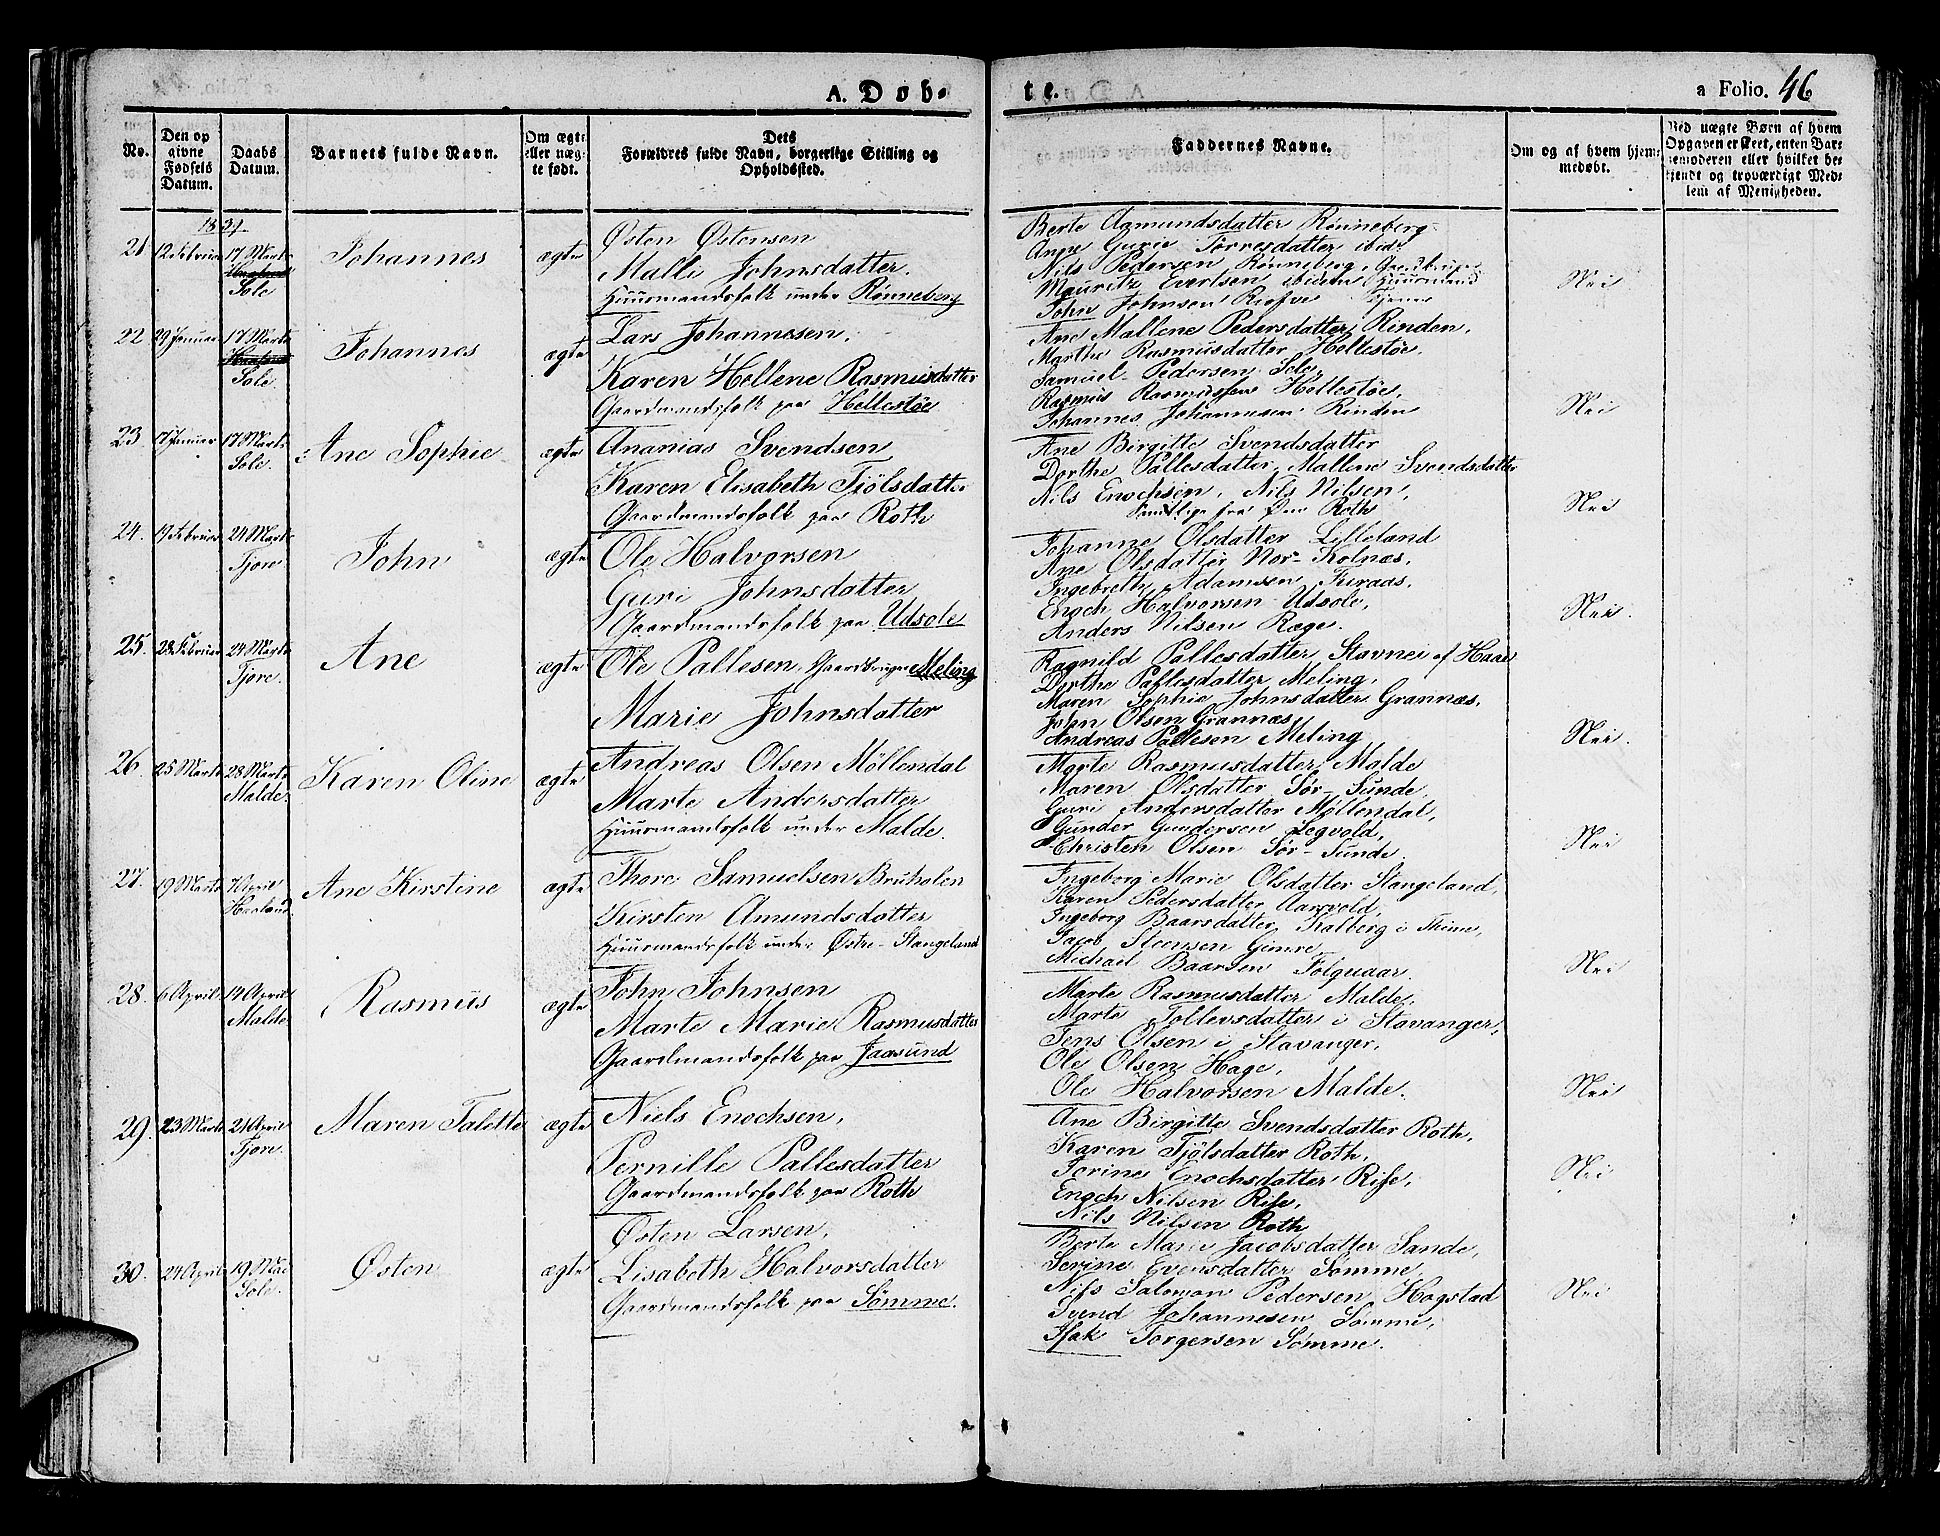 A. Døb-
te.
a Folio. 46
No.
Den op
givne
Fødsels
Datum.
Daabs
Datum.
Barnets fulde Navn.
Om ægte
eller uæg-
te født.
Dets
Forældres fulde Navn, borgerlige Stilling og
Opholdssted.
Faddernes Navne.
Om og af hvem hjem-
medøbt.
Ved uægte Børn af hvem
Opgaven er skeet, enten Bar-
nemoderen eller hvilket be-
kjendt og troværdigt Med-
lem af Menigheden.
21 12 Februar 17 Marts Sole Johannes ægte
Østen Østensen
Malli Johnsdatter.
Huusmandsfolk under Rønneberg
Berte Aamundsdatter Rønneberg
Ane Gurie Torresdatter ibid:
Nils Pedersen Rønneberg, Gaardbruger
Mauritz Evertsen ibidem Huusmand
John Johnsen
Nei
22 29 Januar 17 Marts Sole. Johannes ægte
Lars Johannesen.
Karen Hellene Rasmusdatter
Gaardmandsfolk paa Hellestøe
Ane Mallene Pedersdatter Rinden,
Marthe Rasmusdatter Hellestøe.
Samuel Pedersen Sole,
Rasmus Rasmussen Hellestøe,
Johannes Johannesen Rinden
Nei
23 17 Januar 17 Marts Sole. Ane Sophie ægte
Ananias Svendsen
Karen Elisabeth Tjölsdatter
Gaardmandsfolk paa Roth
Ane Birgitte Svendsdatter
Dorthe Pallesdatter, Mallene Svendsdatter
Nils Enochsen, Nils Nilsen,
Samtlige fra Roth
Nei
24. 19 Februar 24 Marts Tjore John ægte
Ole Halvorsen
Guri Johnsdatter
Gaardmandsfolk paa Udsole
Johanne Olsdatter Lilleland
Ane Olsdatter Nor-Kolnæs,
Ingebreth Adamsen
Enoch Halvorsen Udsole,
Anders Nilsen Ræge.
Nei.
25. 28 Februar 24 Marts Tjore. Ane ægte
Ole Pallesen, Gaardbruger Meling
Marie Johnsdatter
Ragnild Pallesdatter Stavnei af Haae
Dorthe Pallesdatter Meling,
Maren Sophie Johnsdatter Grannæs,
John Olsen Grannæs,
Andreas Pallesen Meling
Nei.
26. 25 Marts 28 Marts Malde. Karen Oline ægte
Andreas Olsen Möllendal
Marte Andersdatter
Huusmandsfolk under Malde.
Marte Rasmusdatter Malde
Maren Olsdatter Sör-Sunde,
Guri Andersdatter Møllendal,
Gunder Gundersen Legvold,
Christen Olsen Sör-Sunde.
Nei
27. 19 Marts 7 April Haaland Ane Kirstine ægte
Thore Samuelsen Bruholen
Kirsten Amundsdatter
Huusmandsfolk under Østre-Stangeland
Ingeborg Marie Olsdatter Stangeland,
Karen Pedersdatter Aarvold,
Ingeborg Baarsdatter Kalberg i Thime,
Jacob Steensen Gimre,
Michael Baarsen Folquaar.
Nei
28. 6 April 14 April Malde Rasmus ægte
John Johnsen
Marte Marie Rasmusdatter
Gaardmandsfolk paa Jaasund
Marte Rasmusdatter Malde,
Marte Tollevsdatter i Stavanger,
Jens Olsen i Stavanger,
Ole Olsen Hage,
Ole Halvorsen Malde.
Nei
29. 23 Marts 21 April Tjore. Maren Talette ægte
Niels Enochsen,
Pernille Pallesdatter
Gaardmandsfolk paa Roth
Ane Birgitte Svendsdatter Roth,
Karen Tjölsdatter Roth,
Torine Enochsdatter Rise,
Enoch Nilsen Rise,
Nils Nilsen Roth
Nei
30. 24 April 19 Mai Sole. Østen ægte
Østen Larsen,
Lisabeth Halvorsdatter
Gaardmandsfolk paa Sømme.
Berte Marie Jacobsdatter Sande,
Serine Evensdatter Sømme,
Nils Salomon Pedersen Hogstad
Svend Johannesen Sömme,
Isak Torgersen Sømme.
Nei